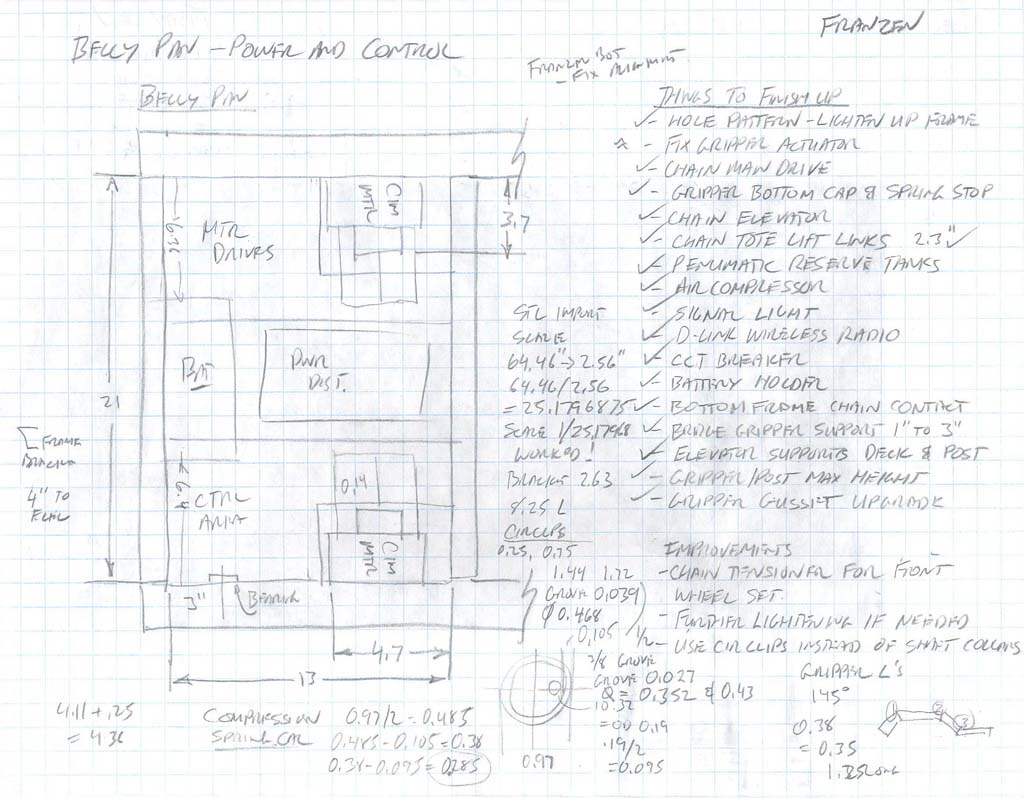 FRANZEN
BELLY PAN - POWER AND CONTROL
FRANZEN BOT
- FIX ALIGNMENT
BELLY PAN
THINGS TO FINISH UP
✓- HOLE PATTERN - LIGHTEN UP FRAME
☆ - FIX GRIPPER ACTUATOR
✓- CHAIN MAIN DRIVE
✓- GRIPPER BOTTOM CAP & SPRING STOP
✓- CHAIN ELEVATOR
✓- CHAIN TOTE LIFT LINKS 2.3" ✓
✓- PENUMATIC RESERVE TANKS
✓- AIR COMPRESSOR
✓- SIGNAL LIGHT
✓- D-LINK WIRELESS RADIO
✓- CCT BREAKER
✓- BATTERY HOLDER
✓- BOTTOM FRAME CHAIN CONTACT
✓- BRIDGE GRIPPER SUPPORT 1" TO 3"
✓- ELEVATOR SUPPORTS DECK & POST
✓- GRIPPER/POST MAX HEIGHT
✓- GRIPPER GUSSET UPGRADE
IMPROVEMENTS
- CHAIN TENSIONER FOR FRONT
WHEEL SET.
- FURTHER LIGHTENING IF NEEDED
- USE CIRCLIPS INSTEAD OF SHAFT COLLARS
6.36
MTR
DRIVES
CIM
MTR
3.7
BAT
PWR
DIST.
21
FRAME
BRACKET
4" TO
6.4
CTRL
AREA
0.14
CIM
MTR
3"
BEARING
4.7
13
STL IMPORT
SCALE
64.46" -> 2.56"
64.46/2.56
= 25.1796875
SCALE 1/25.17968
WORKED!
BRACKET 2.63
8.25 L
CIRCLIPS
0.25, 0.75
1.44 1.72
GROVE 0.039
Ø 0.468
0.105
1/2
3/8 GROVE
GROVE 0.027
Q = 0.352 & 0.43
10.32
= OD 0.19
.19/2
= 0.095
0.97
4.11 + .25
= 4.36
COMPRESSION 0.97/2 = 0.485
SPRING 0.485 - 0.105 = 0.38
0.38 - 0.095 = 0.285
GRIPPER L'S
145°
0.38
= 0.35
1.25 LONG
1 2 3